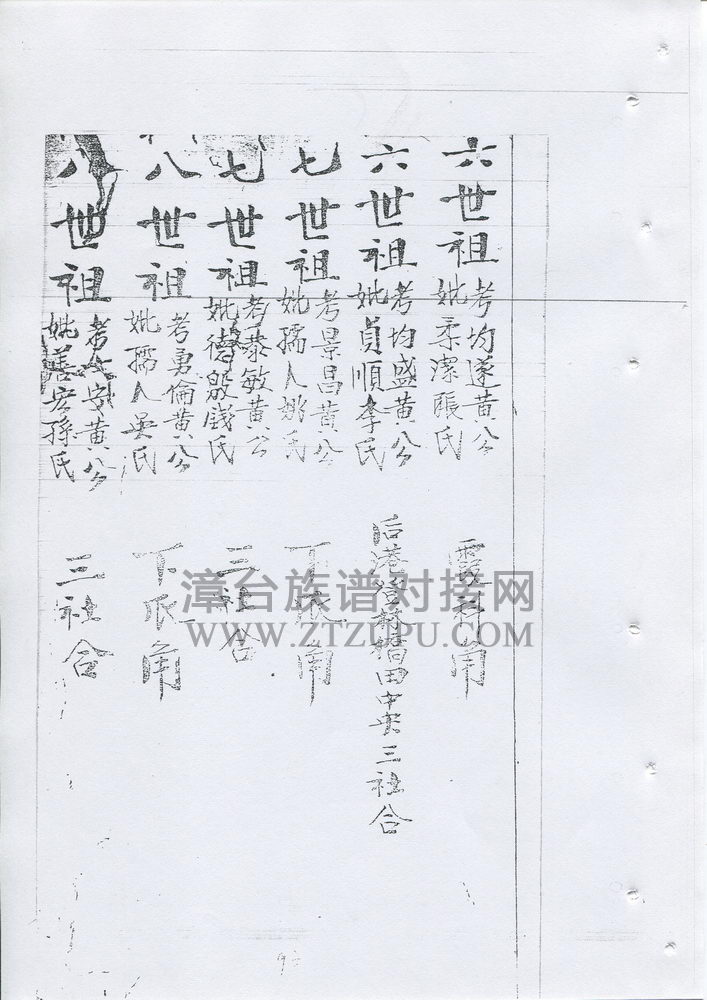 六世祖
考均遂黄公
妣柔潔張氏
霞科角
六世祖
考均盛黄公
妣貞順李氏
后港登林墙田中央三社合
七世祖
考景昌黄公
妣孺人姚氏
下辰角
七世祖
考泰敏黄公
妣德慇錢氏
三社合
八世祖
考勇倫黄公
妣孺人吳氏
下辰角
八世祖
考 安黄公
妣善宏孫氏
三社合
漳台族谱对接网
WWW.ZTZUPU.COM